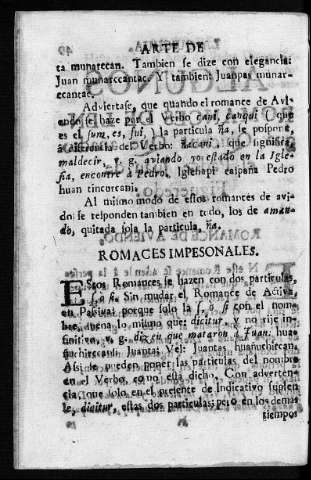 ARTE DE
ta munarecan. Tambien se dize con elegancia:
Juan munarccantac. Y tambien Juanpas munar-
ecantac.
Adviertase, que quando el romance de Avi-
endo se haze por el Verbo cani, canqui Que
es el sum, es, fui, la particula ña, se pospone
à del Verbo: Ñacani, que significa
maldecir, v. g. aviendo yo estado en la Igle-
sia, encontre à Pedro, Iglehapi caspaña Pedro
huan tincurcani.
Al mismo modo de estos romances de avi-
do se responden tambien en todo, los de aman-
do, quitada sola la particula, ña.
ROMACES IMPESONALES.
EStos Romances se hazen con dos particulas,
si, ò se. Sin mudar el Romance de Activa,
en Passiva: porque solo la s, ò si con el nom-
bre, suena lo mismo que; dicitur, y no rije in-
finitivo, v. g. dize que mataron à Juan. huañ
uchircancu. Juanta; Vel; Juantas huañuchircan.
Assi se pueden poner las particulas del nombre
en el Verbo, como està dicho. Con adverten-
cia, que solo en el presente de Indicativo suplen
le, dicitur, estas dos particulas; pero en los demas
tiempos